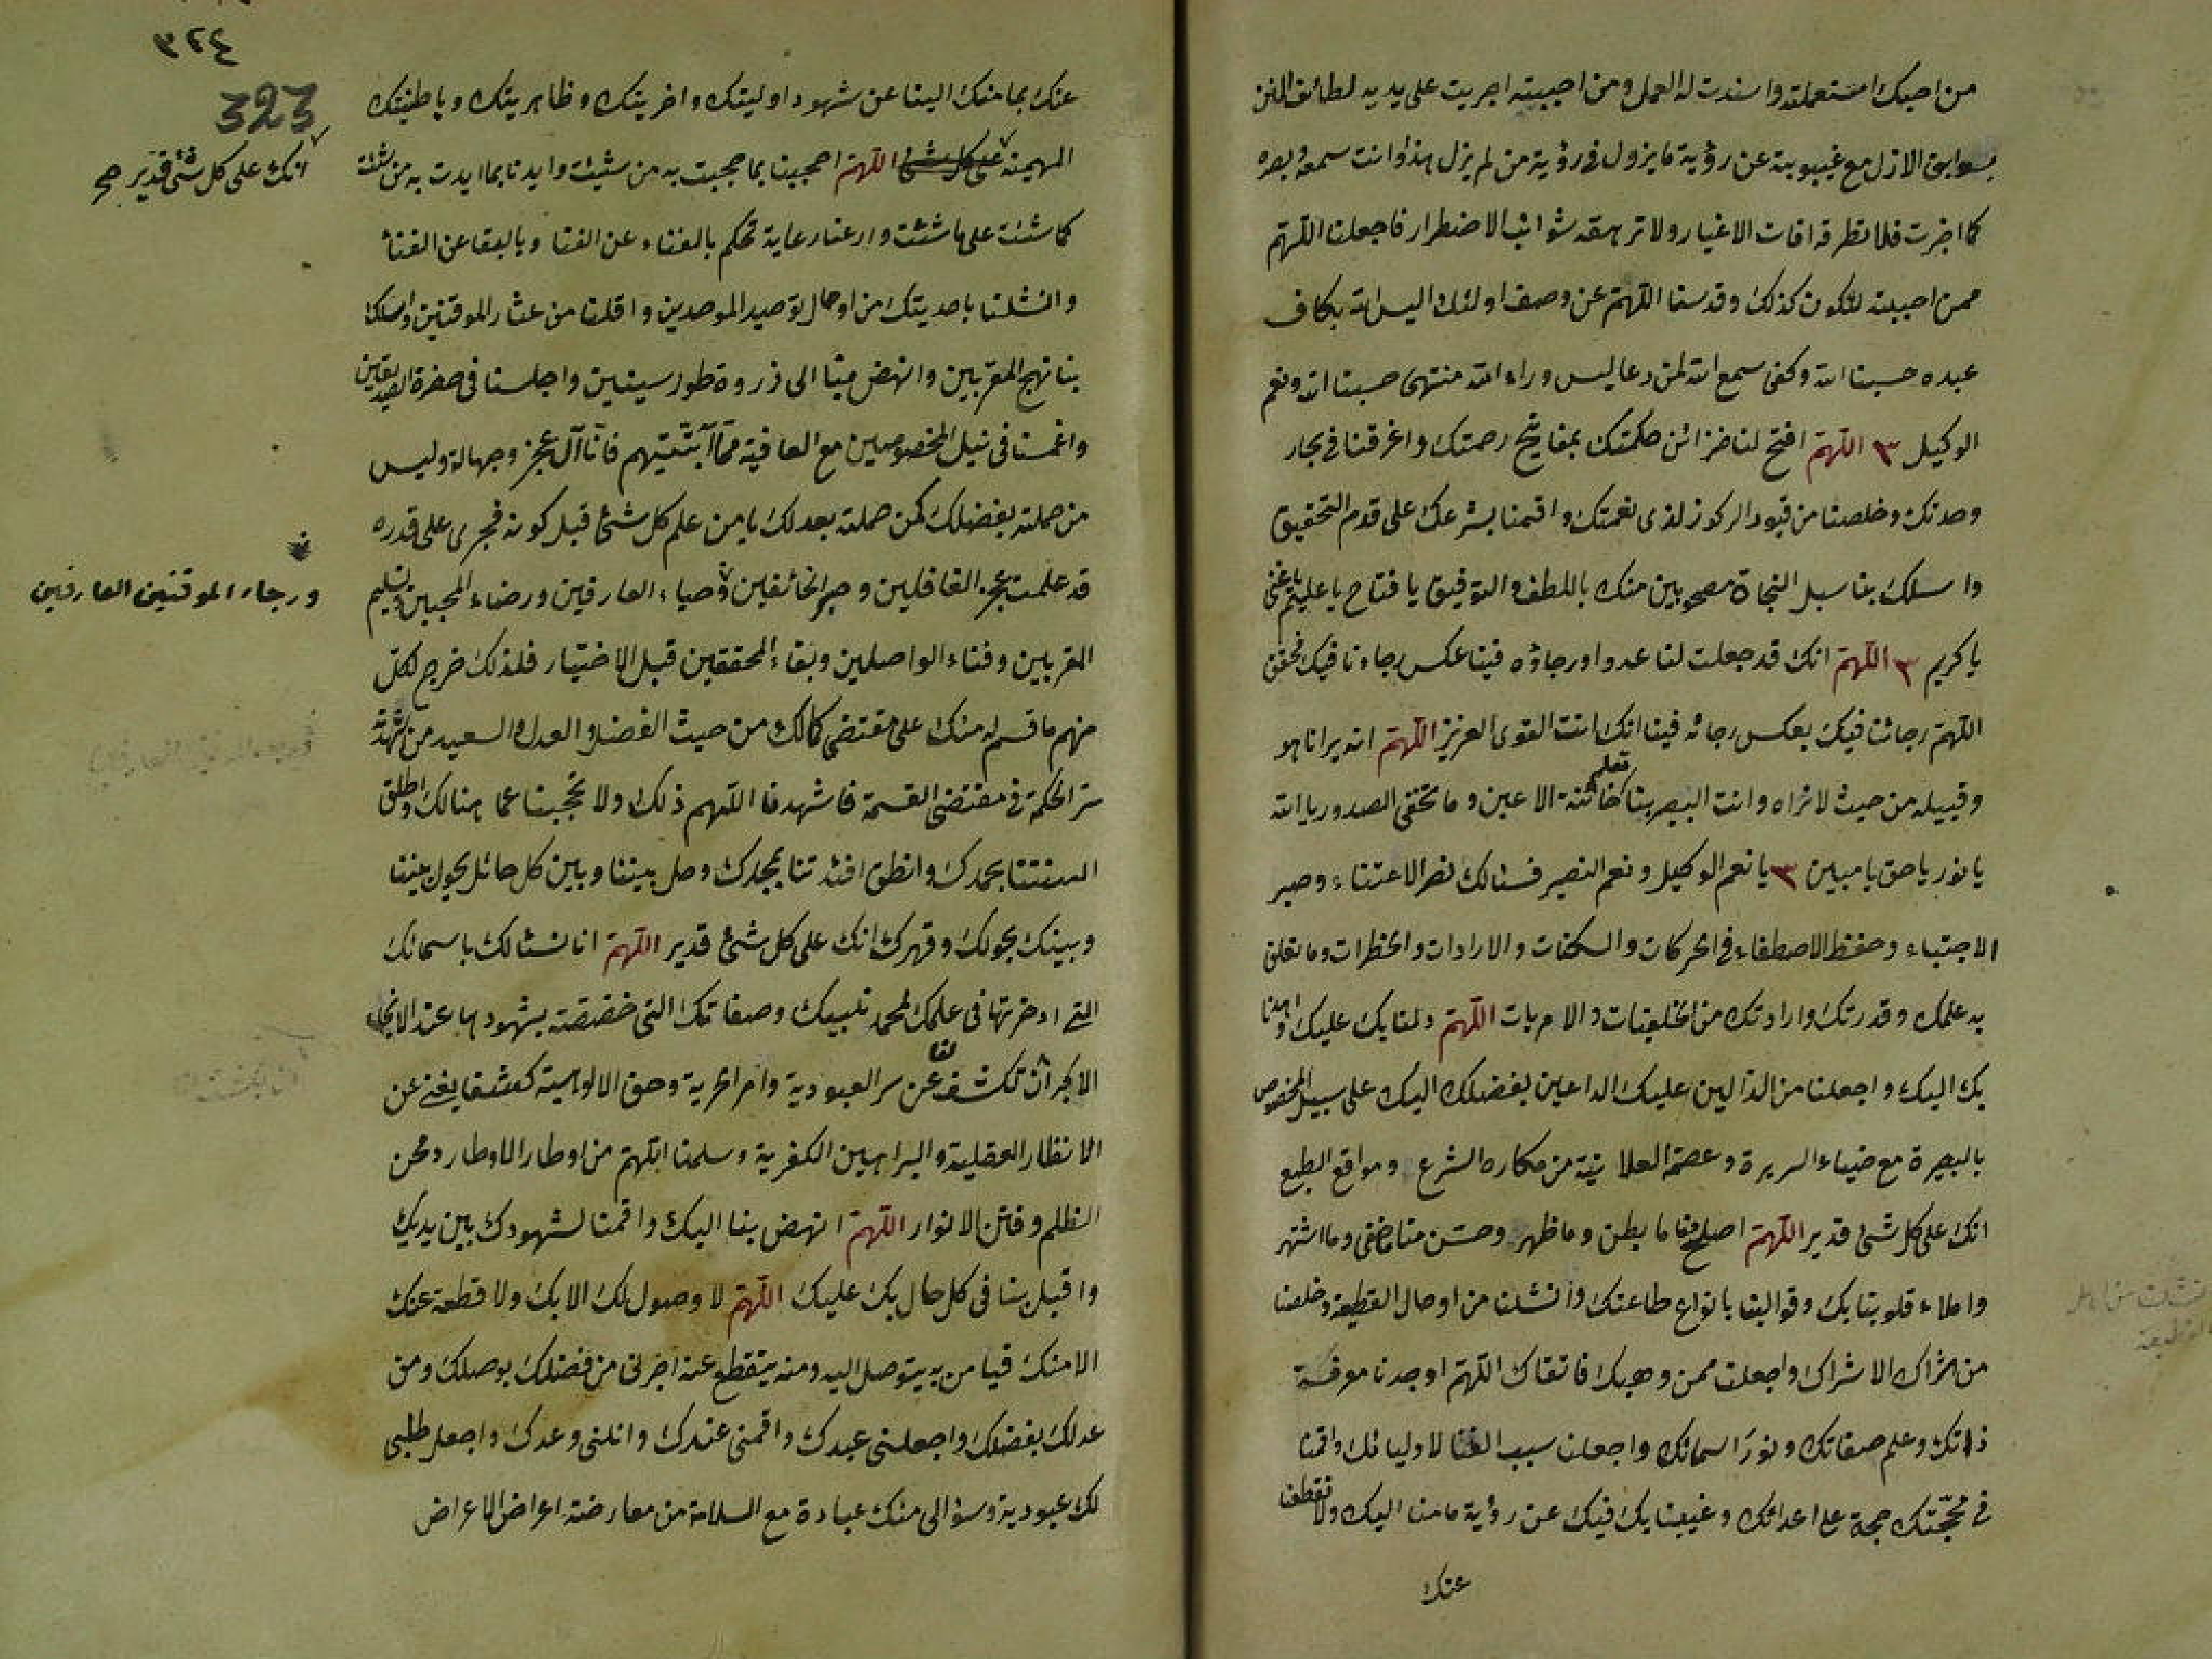 من احبك استعملته واسندت له العمل ومن احببته اجريت على يديه لطائف المنن
بسوابق الازل مع غيبوبية عن رؤية ما يزول في رؤية من لم يزل هذا وانت سمعه وبصره
كما اخبرت فلا تطرقه افات الاغيار ولا ترهقه شوائب الاضطرار فاجعلنا اللهم
ممن احببته لنكون كذلك وقدسنا اللهم عن وصف اولئك اليس الله بكاف
عبده حسبنا الله وكفى سمع الله لمن دعا ليس وراء الله منتهى حسبنا الله ونعم
الوكيل ٣ اللهم افتح لنا خزائن حكمتك بمفاتيح رحمتك واغرقنا في بحار
وحدتك وخلصنا من قيود الركوز لذى نعمتك واقمنا بشرعك على قدم التحقيق
واسلك بنا سبل النجاة مصحوبين منك باللطف والتوفيق يا فتاح يا عليم يا غنى
يا كريم ٣ اللهم انك قد جعلت لنا عدوا ورجاؤه فينا عكس رجاونا فيك فحقق
اللهم رجائنا فيك بعكس رجائه فينا انك انت القوى العزيز اللهم انه يرانا هو
وقبيله من حيث لا نراه وانت البصير بنا تعلم خائنة الاعين وما تخفى الصدور يا الله
يا نور يا حق يا مبين ٣ يا نعم الوكيل ونعم النصير فنسالك نصر الاعتناء وصبر
الاجتباء وحفظ الاصطفاء في الحركات والسكنات والارادات والخطرات وما تعلق
به علمك وقدرتك وارادتك من الخلقيات والامريات اللهم دلنا بك عليك واهدنا
بك اليك واجعلنا من الدالين عليك الداعين بفضلك اليك على سبيل الخصوص
بالبصيرة مع ضياء السريرة وعصمة العلانية من مكاره الشرع ومواقع الطبع
انك على كل شئ قدير اللهم اصلح منا ما بطن وما ظهر وحسن منا ما خفى وما اشتهر
واملاء قلوبنا بك وقوالبنا بانواع طاعتك وانشلنا من اوحال القطيعة وخلصنا
من اشراك الاشراك واجعلنا ممن وحدك فاتقاك اللهم اوجدنا معرفة
ذاتك وعلم صفاتك ونور اسمائك واجعلنا سبب الغنا لاوليائك واقمنا
في محجتك حجة على اعدائك وغيبنا بك فيك عن رؤية ما منا اليك ولا تقطعنا
عنك
٣٢٤
323
عنك بما منك الينا عن شهود اوليتك واخريتك وظاهريتك وباطنيتك
المهيمنة على كل شئ اللهم احجبنا بما حجبت به من شئت وايدنا بما ايدت به من شئت
انك على كل شئ قدير صح
كما شئت على ما شئت وارعنا رعاية تحكم بالفناء عن الفنا وبالبقا عن الفنا
وانشلنا باحديتك من اوحال توحيد الموحدين واقلنا من عثار الموقنين واسلك
بنا نهج المقربين وانهض منا الى ذروة طور سينين واجلسنا في حضرة الصديقين
واغمسنا في نيل المخصوصين مع العافية مما ابتليتهم فانا آل عجز وجهالة وليس
من حملته بفضلك كمن حملته بعدلك يا من علم كل شئ قبل كونه فجرى على قدره
قد علمت عجز الغافلين وصبر الخائفين وحياء العارفين ورضاء المحبين وتسليم
ورجاء الموقنين العارفين
المقربين وفناء الواصلين وبقاء المحققين قبل الاختيار فلذلك خرج لكل
منهم ما قسم له منك على مقتضى كمالك من حيث الفضل والعدل والسعيد من شهد
سر الحكمة في مقتضى القسمة فاشهدنا اللهم ذلك ولا تحجبنا عما هنالك واطلق
السنتنا بحمدك وانطق افئدتنا بمجدك وحل بيننا وبين كل حائل يحول بيننا
وبينك بحولك وقهرك انك على كل شئ قدير اللهم انا نسئالك باسمائك
التى ادخرتها في علمك لمحمد نبيك وصفاتك التى خصصته بشهودها عند الانجلاء
الاكبر ان تكشف لنا عن سر العبودية وامر الحرية وحق الالوهية كشفا يغنى عن
الانظار العقلية والبراهين الفكرية وسلمنا اللهم من اوطار الاوطار ومحن
الظلم وفتن الانوار اللهم انهض بنا اليك واقمنا لشهودك بين يديك
واقبل بنا فى كل حال بك عليك اللهم لا وصول لك الا بك ولا قطعة عنك
الا منك فيا من به يتوصل اليه ومنه ينقطع عنه اجرنى من فضلك بوصلك ومن
عدلك بفضلك واجعلنى عبدك واقمنى عندك وانلنى وعدك واجعل طلبى
لك عبودية وسؤالى منك عبادة مع السلامة من معارضة اعراض الاعراض